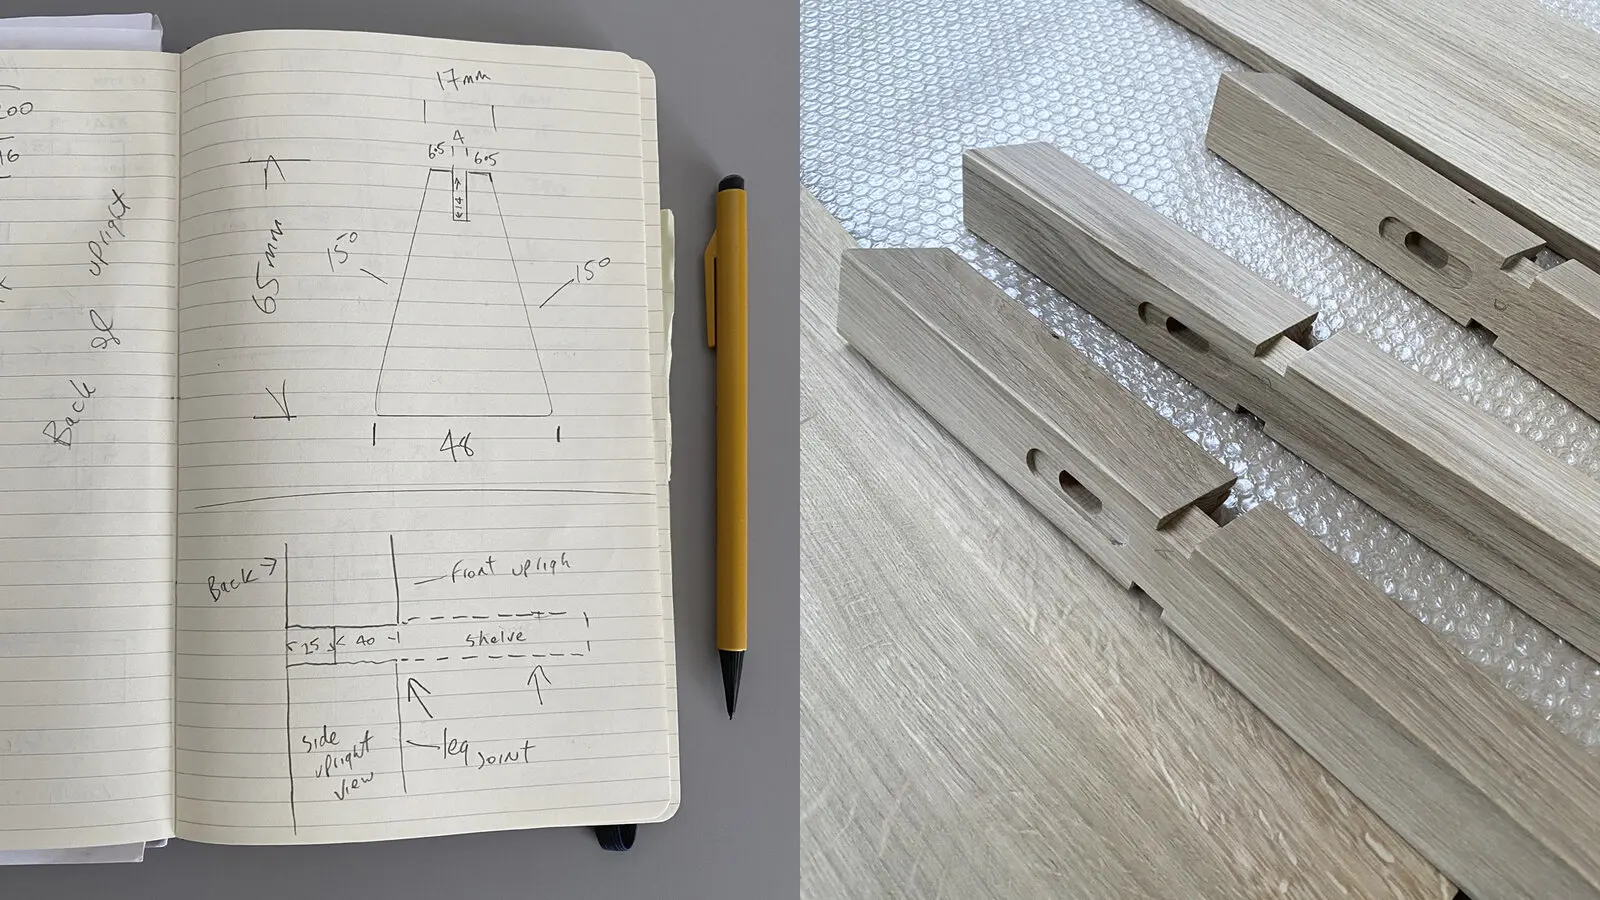 200
16
Back of upright
17mm
4
6.5 6.5
14
65mm
15°
15°
48
Back
Front uprigh
25 40
shelve
side
upright
view
leg joint